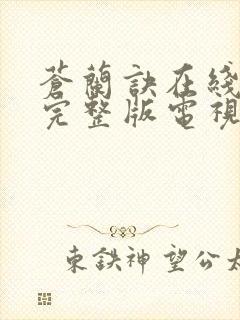 蒼蘭訣在綫
完整版電視
東鉄神望公太